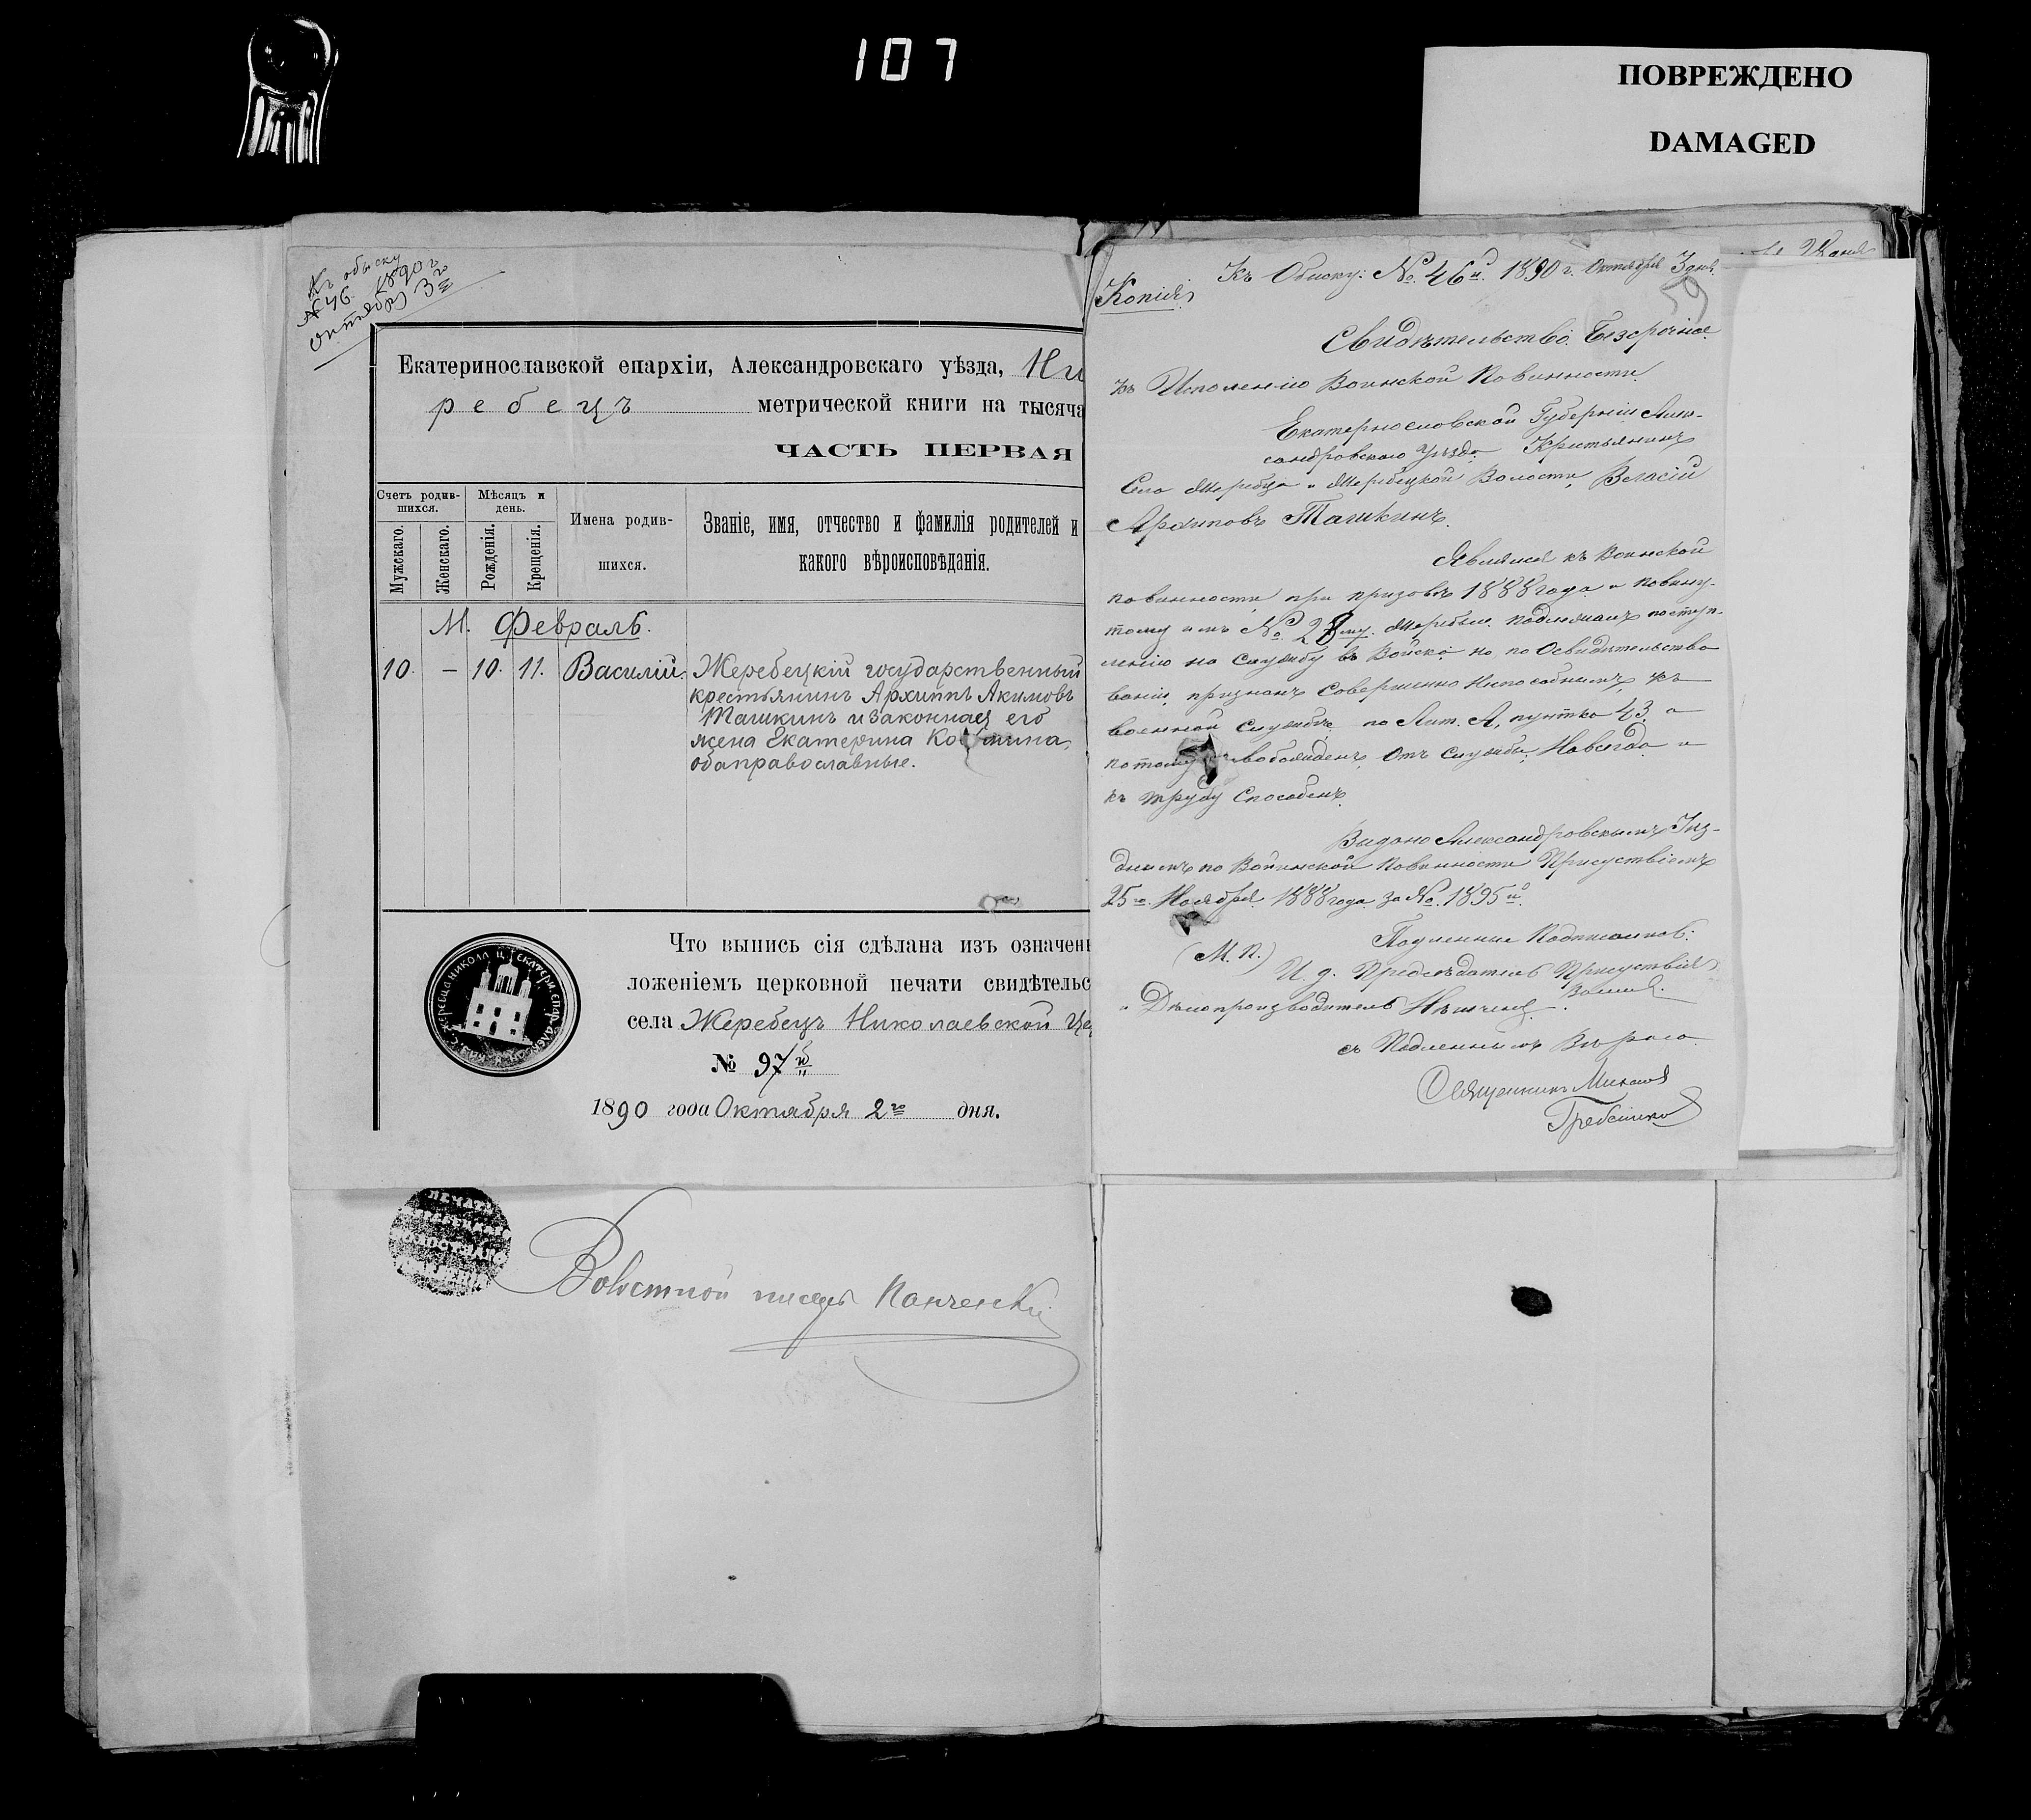 107
ПОВРЕЖДЕНО
DAMAGED
Къ обыску
№ 46. 1890 г.
октября 3го
Екатеринославской епархіи, Александровскаго уѣзда, Ни
ребецъ метрической книги на тысяча
ЧАСТЬ ПЕРВАЯ
Счетъ родив-
шихся.
Мѣсяцъ и
день.
Мужскаго.
Женскаго.
Рожденія.
Крещенія.
Имена родив-
шихся.
Званіе, имя, отчество и фамилія родителей и
какого вѣроисповѣданія.
М. Февраль.
10. – 10. 11. Василій. Жеребецкій государственный
крестьянинъ Архиппъ Акимовъ
Ташкинъ и законная его
жена Екатерина
оба православные.
Что выпись сія сдѣлана изъ означен
ложеніемъ церковной печати свидѣтельс
села Жеребецъ Николаевской Це
№ 97й
1890 года Октября 2го дня.
Волостной писарь
59
Копія
Къ Обиску: № 46й 1890 г. Октября 3 дня.
Свидѣтельство Безсрочное
къ Исполенію Воинской Повинности.
Екатеринословской Губерніи Алек-
сандровскаго Уѣзда Крестьянинъ
Села Жеребца и Жеребецкой Волости, Власій
Архиповъ Ташкинъ.
Явлился къ Воинской
повинности при призовѣ 1888 года и повину-
тому имъ № 28му. Жеребью подлежалъ поступ-
ленію на Службу въ Войско но по Освидѣтельство
ваніи, признанъ Совершенно Неспособнымъ къ
военной службѣ по Лит. А, пункта 43 а
потому свобожденъ Отъ Службы Навсегда и
къ труду Способенъ.
Видано Александровскимъ Уѣз-
днымъ по Воинской Повинности Присуствіемъ
25го Ноября 1888 года за № 1895й
Подленные Подписались:
(М. П.) И. д. Предсѣдателя Присуствія
и Дѣлопроизводитель
съ Подленнымъ Вѣрно
Священникъ Михаилъ